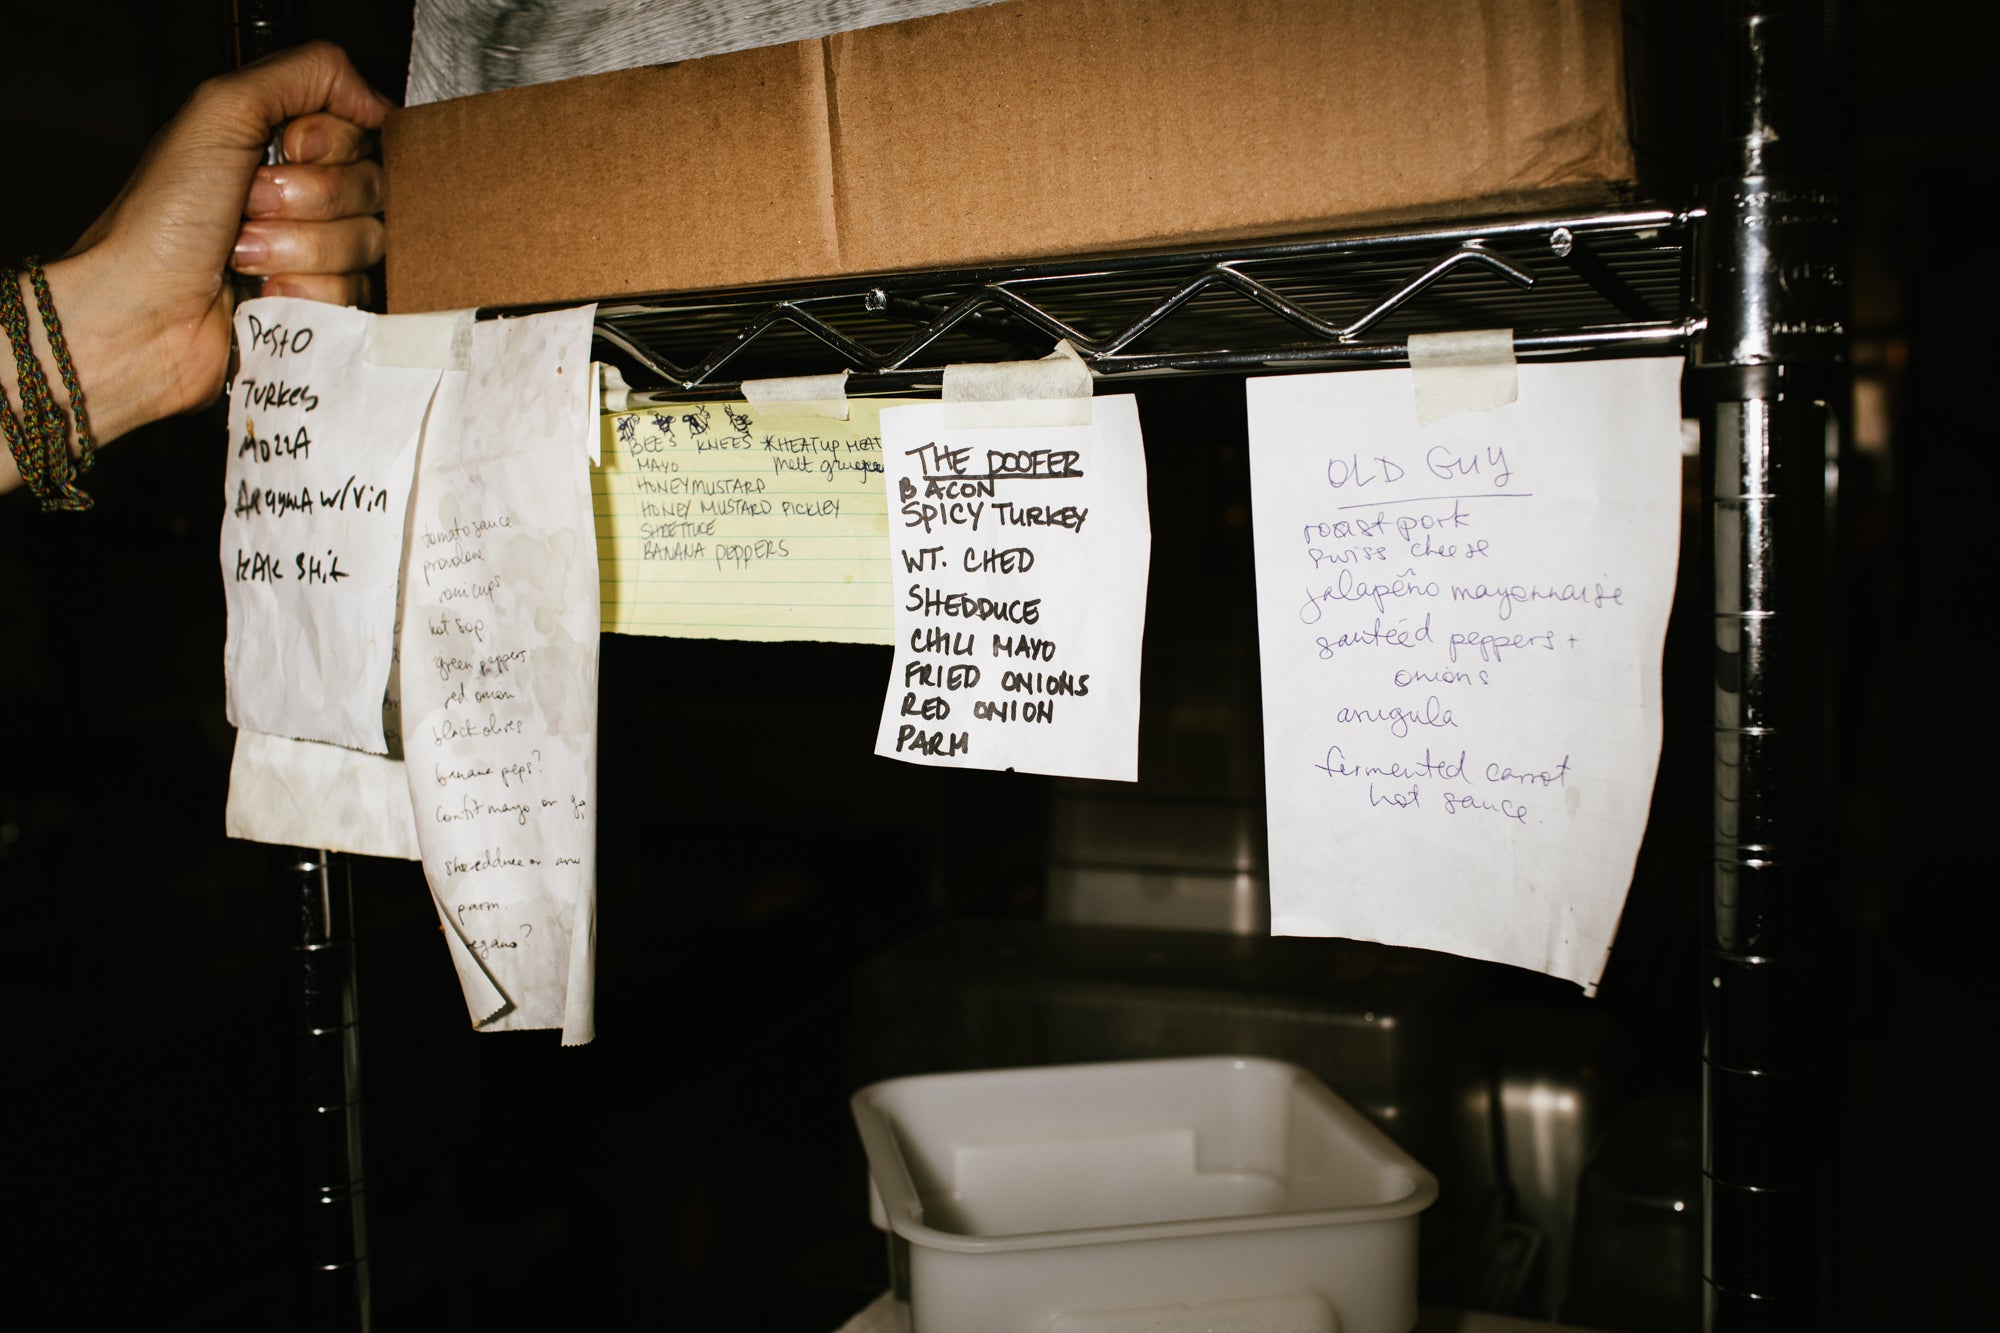 PESTO
TURKEY
MOZZA
ARUGULA w/Vin
tomato sauce
provolone
roni cups
hot sop
green peppers
red onion
black olives
banana peps?
confit mayo or
shredduce or
parm.
BEE'S KNEES *HEAT UP MEAT
MAYO melt gruyere
HONEYMUSTARD
HONEY MUSTARD PICKLEY
SHRETTUCE
BANANA PEPPERS
THE DOOFER
BACON
SPICY TURKEY
WT. CHED
SHEDDUCE
CHILI MAYO
FRIED ONIONS
RED ONION
PARM
OLD GUY
roast pork
swiss cheese
jalapeño mayonnaise
sautéed peppers +
onions
arugula
fermented carrot
hot sauce.